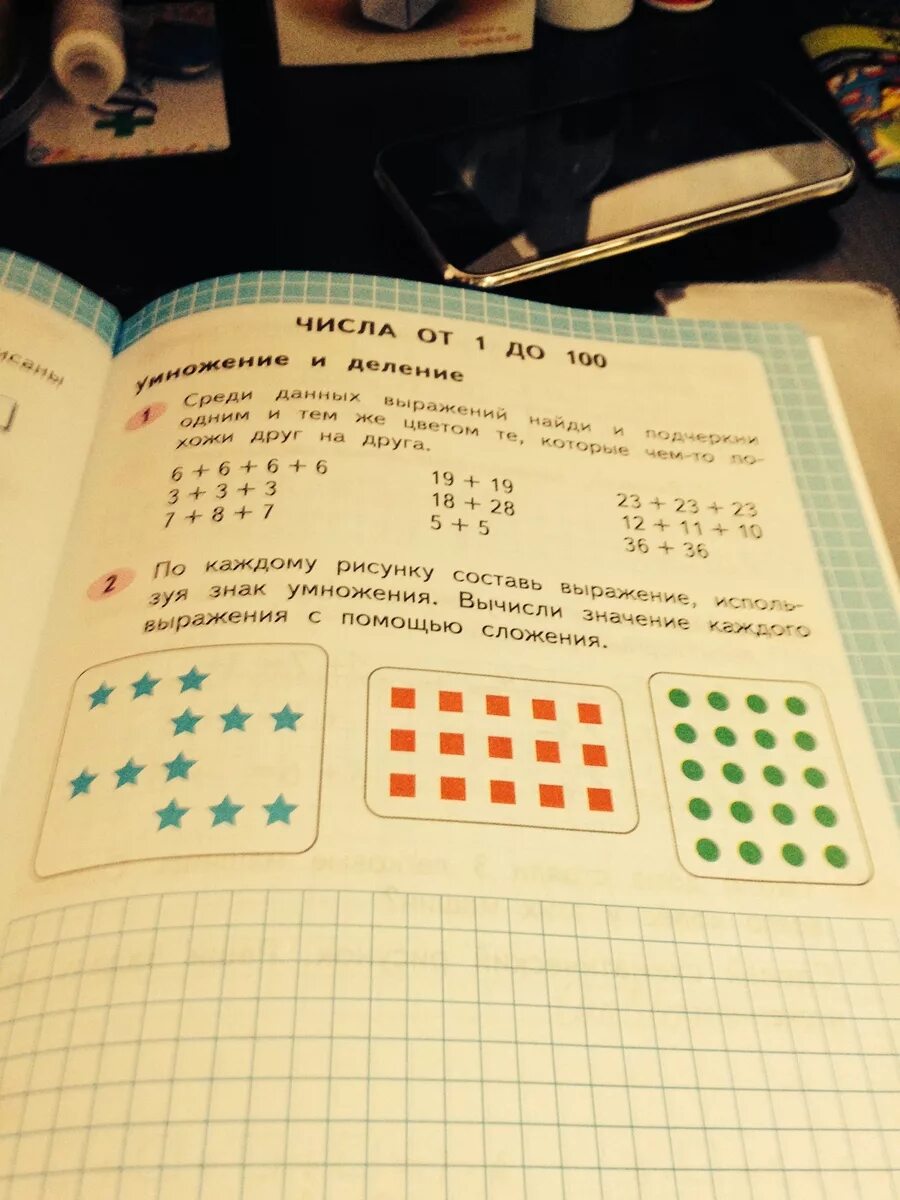 ЧИСЛА ОТ 1 ДО 100
умножение и деление
1 Среди данных выражений найди и подчеркни
одним и тем же цветом те, которые чем-то по-
хожи друг на друга.
6 + 6 + 6 + 6
3 + 3 + 3
7 + 8 + 7
19 + 19
18 + 28
5 + 5
23 + 23 + 23
12 + 11 + 10
36 + 36
2 По каждому рисунку составь выражение, исполь-
зуя знак умножения. Вычисли значение каждого
выражения с помощью сложения.